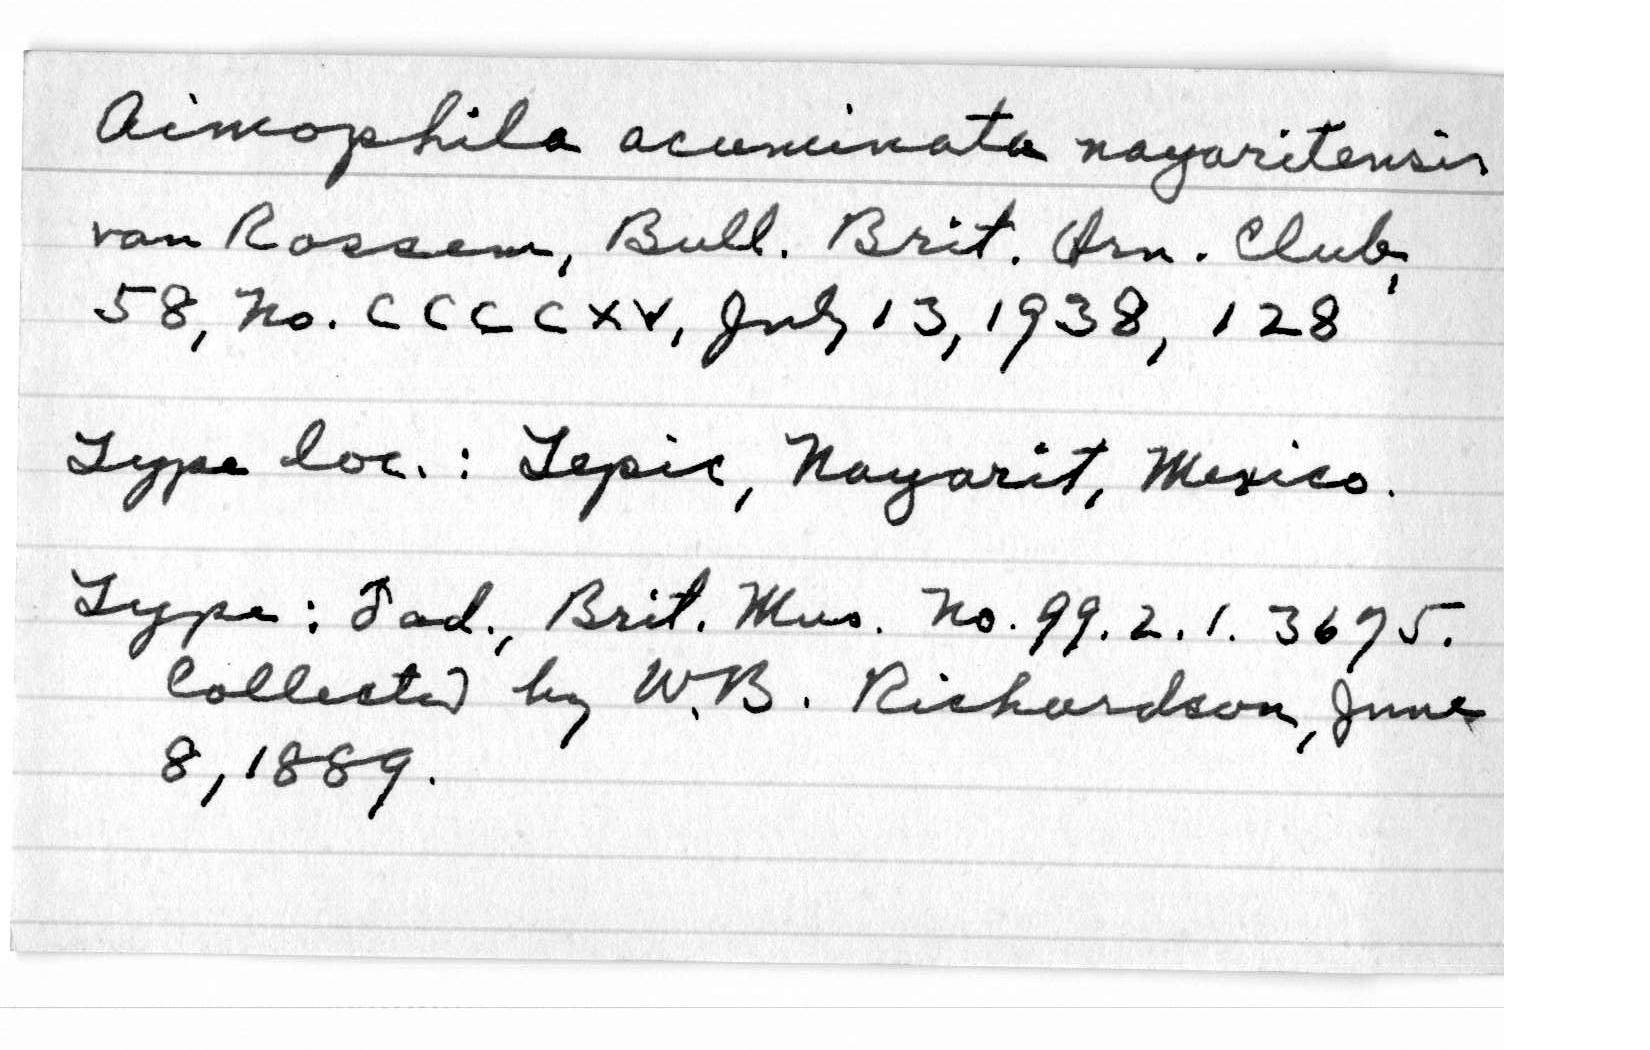 Aimophila acuminata nayaritensis
van Rossem, Bull. Brit. Orn. Club,
58, No. CCCCXV, July 13, 1938, 128
Type loc.: Tepic, Nayarit, Mexico.
Type: ♂ ad., Brit. Mus. No. 99.2.1.3675.
Collected by W.B. Richardson, June
8, 1889.